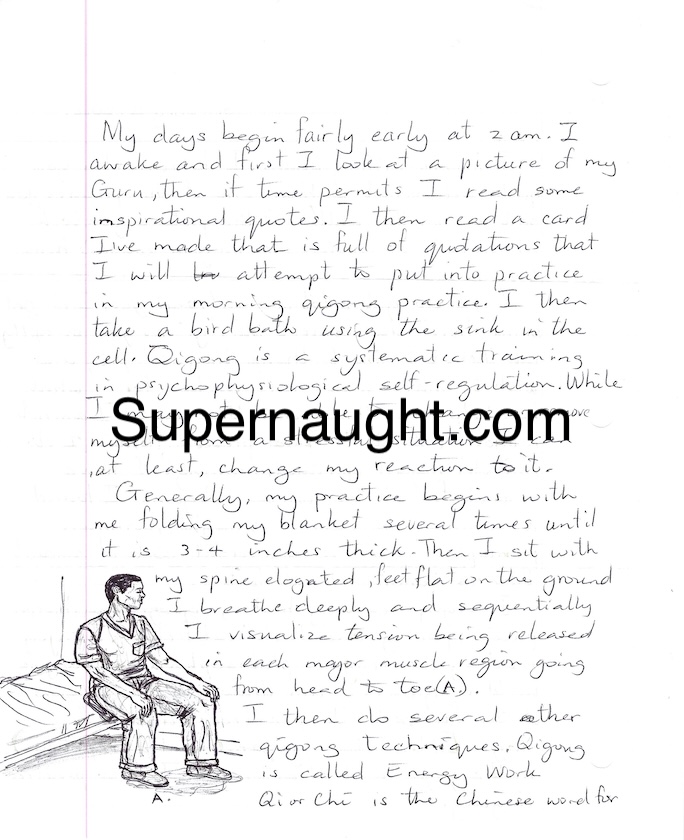 My days begin fairly early at 2 am. I
awake and first I look at a picture of my
Guru, then if time permits I read some
inspirational quotes. I then read a card
I've made that is full of quotations that
I will attempt to put into practice
in my morning qigong practice. I then
take a bird bath using the sink in the
cell. Qigong is a systematic training
in psychophysiological self-regulation. While
I may not be able to
Supernaught.com
myself from a stressful situation I can
,at least, change my reaction to it.
Generally, my practice begins with
me folding my blanket several times until
it is 3-4 inches thick. Then I sit with
my spine elogated, feet flat on the ground
I breathe deeply and sequentially
I visualize tension being released
in each major muscle region going
from head to toe(A.).
I then do several other
qigong techniques. Qigong
is called Energy Work
A. Qi or Chi is the Chinese word for